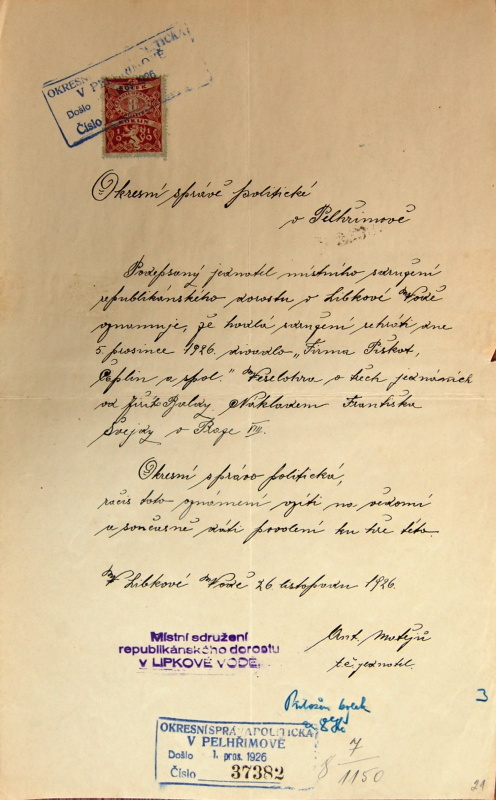 OKRESNÍ POLITICKÁ
V PELHŘIMOVĚ
Došlo 1926
Číslo
8
1919
Okresní správě politické
v Pelhřimově
Podepsaný jednatel místního sdružení
republikánského dorostu v Libkové Vodě
oznamuje, že hodlá sdružení sehráti dne
5 prosince 1926. divadlo „Firma Piškot,
Čaplin a spol." Veselohra o třech jednáních
od Jiřího Baldy Nákladem Františka
Švejdy v Praze VIII.
Okresní správo politická,
račiž toto oznámení vzíti na vědomí
a současně dáti povolení ku hře této.
V Libkové Vodě 26 listopadu 1926.
Ant. Matějů
t.č. jednatel.
Místní sdružení
republikánského dorostu
v LIPKOVÉ VODĚ.
Přiložen kolek
3
OKRESNÍ SPRÁVA POLITICKÁ
V PELHŘIMOVĚ
Došlo 1. pros. 1926
Číslo 37382
8 7/1150
21